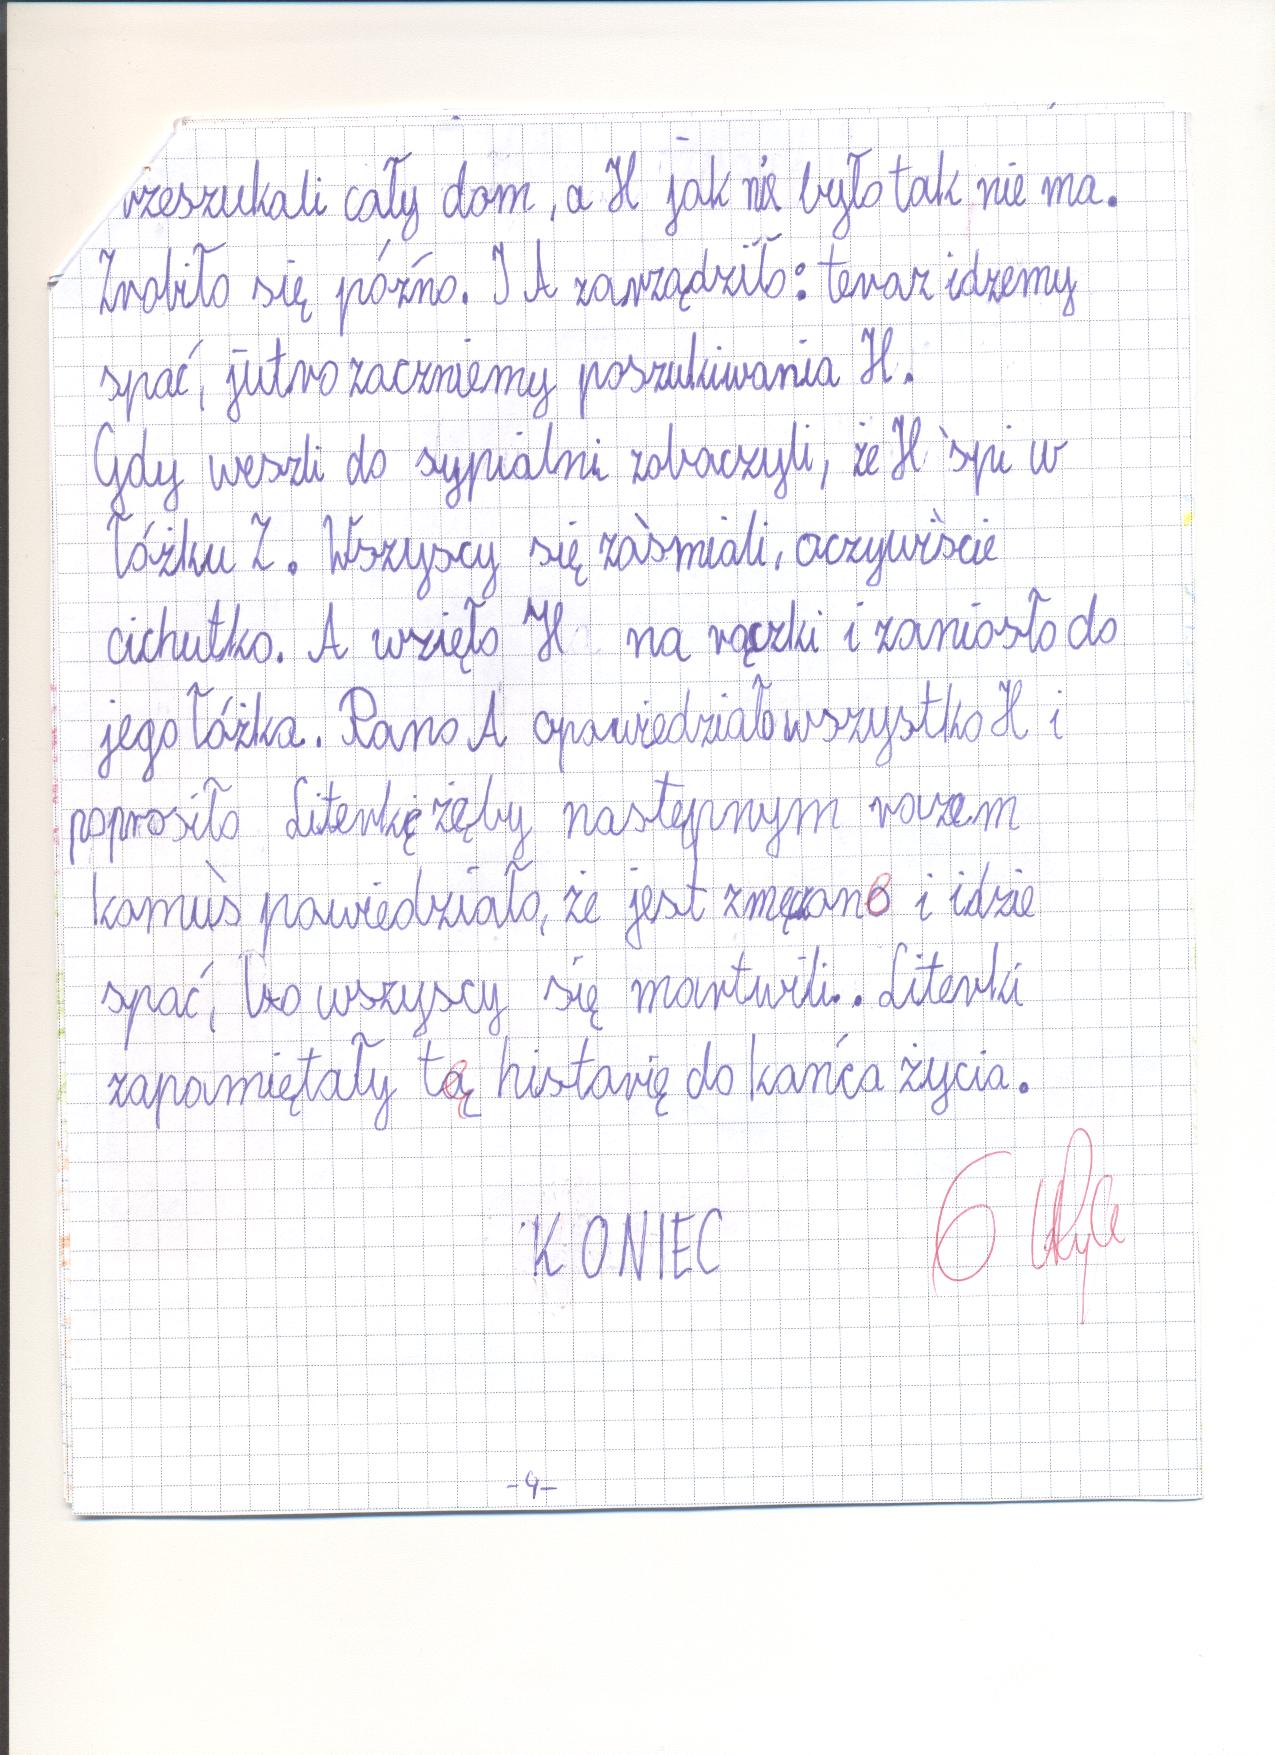 rzeszukali cały dom, a H jak nie było tak nie ma.
Zrobiło się późno. I A zarządziło: teraz idzemy
spać, jutro zaczniemy poszukiwania H.
Gdy weszli do sypialni zobaczyli, że H śpi w
łóżku Z. Wszyscy się zaśmiali, oczywiście
cichutko. A wzięło H na rączki i zaniosło do
jego łóżka. Rano A opowiedziało wszystko H i
poprosiło Literkę żęby następnym razem
komuś powiedziało, że jest zmęczone i idzie
spać, bo wszyscy się martwili.. Literki
zapamiętały tę historię do końca życia.
KONIEC
6
-4-